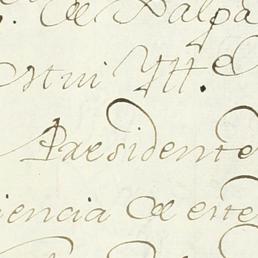 de Xalpa
Mui Yll.e
Presidente
iencia de este